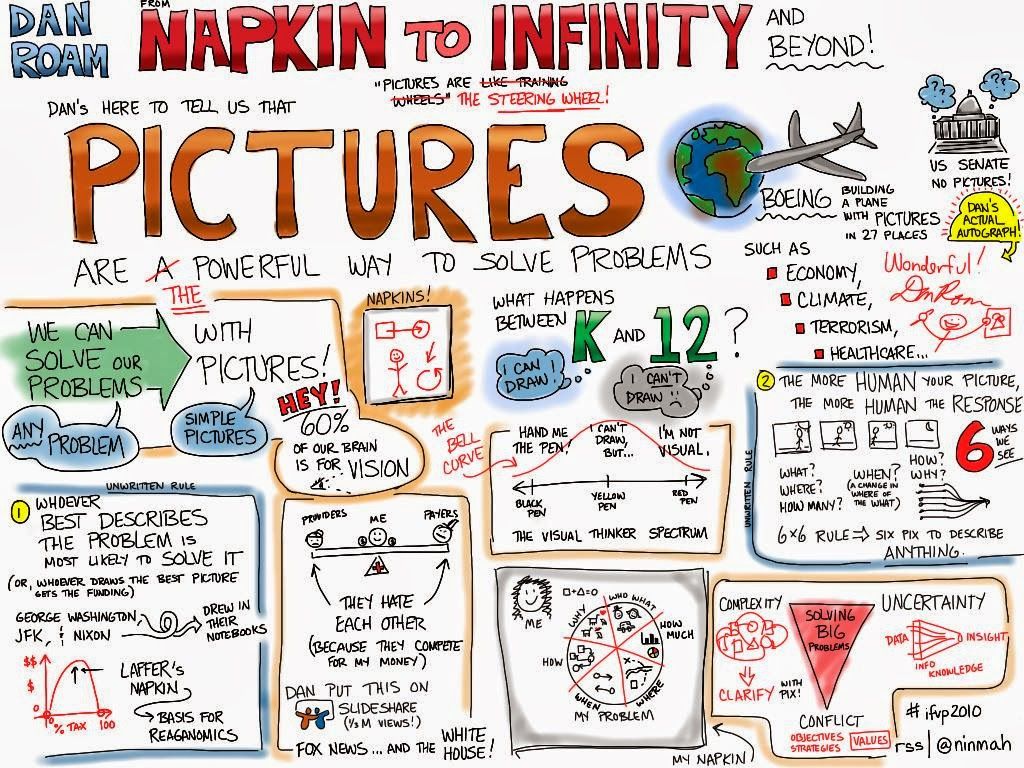 DAN
ROAM
FROM
NAPKIN TO INFINITY
AND
BEYOND!
"PICTURES ARE LIKE TRAINING
WHEELS" THE STEERING WHEEL!
DAN'S HERE TO TELL US THAT
PICTURES
ARE A POWERFUL WAY TO SOLVE PROBLEMS
THE
BOEING
BUILDING
A PLANE
WITH PICTURES
IN 27 PLACES
US SENATE
NO PICTURES!
DAN'S
ACTUAL
AUTOGRAPH!
SUCH AS
ECONOMY,
CLIMATE,
TERRORISM,
HEALTHCARE...
Wonderful!
Dan Roam
WE CAN
SOLVE OUR
PROBLEMS
WITH
PICTURES!
ANY
PROBLEM
SIMPLE
PICTURES
NAPKINS!
HEY!
60%
OF OUR BRAIN
IS FOR VISION
WHAT HAPPENS
BETWEEN
K AND 12?
I CAN
DRAW!
I CAN'T
DRAW
THE
BELL
CURVE
HAND ME
THE PEN!
I CAN'T
DRAW,
BUT...
I'M NOT
VISUAL.
BLACK
PEN
YELLOW
PEN
RED
PEN
THE VISUAL THINKER SPECTRUM
UNWRITTEN RULE
2 THE MORE HUMAN YOUR PICTURE,
THE MORE HUMAN THE RESPONSE
6
WAYS
WE
SEE
WHAT?
WHERE?
HOW MANY?
WHEN?
(A CHANGE IN
WHERE OF
THE WHAT)
HOW?
WHY?
6x6 RULE ⇒ SIX PIX TO DESCRIBE
ANYTHING.
UNWRITTEN RULE
1 WHOEVER
BEST DESCRIBES
THE PROBLEM IS
MOST LIKELY TO SOLVE IT
(OR, WHOEVER DRAWS THE BEST PICTURE
GETS THE FUNDING)
GEORGE WASHINGTON
JFK, & NIXON
DREW IN
THEIR
NOTEBOOKS
$$
$
0
% TAX
100
LAFFER'S
NAPKIN
BASIS FOR
REAGANOMICS
PROVIDERS
ME
PAYERS
THEY HATE
EACH OTHER
(BECAUSE THEY COMPETE
FOR MY MONEY)
DAN PUT THIS ON
SLIDESHARE
(1/3 M VIEWS!)
FOX NEWS... AND THE WHITE
HOUSE!
□+△=○
ME
WHY
WHO WHAT
HOW
MUCH
HOW
WHEN
WHERE
MY PROBLEM
MY NAPKIN
COMPLEXITY
CLARIFY WITH
PIX!
SOLVING
BIG
PROBLEMS
UNCERTAINTY
DATA
INSIGHT
INFO
KNOWLEDGE
CONFLICT
OBJECTIVES
STRATEGIES
VALUES
#ifvp2010
rss|@ninmah